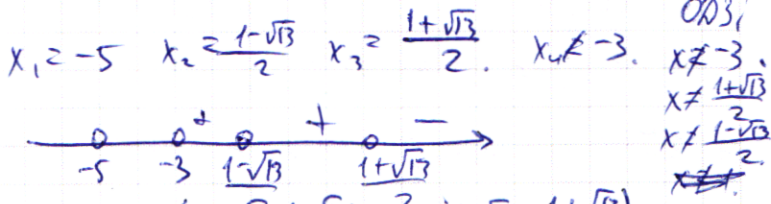 x₁ = -5   x₂ = (1-√13)/2   x₃ = (1+√13)/2.   x₄ ≠ -3.
ОДЗ:
x ≠ -3.
x ≠ (1+√13)/2
x ≠ (1-√13)/2.
+ + −
-5   -3   1-√13   1+√13